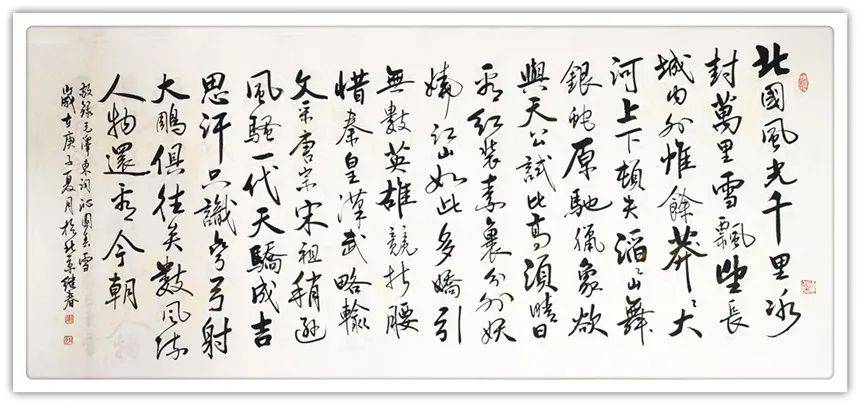 北國風光千里冰
封萬里雪飄望長
城内外惟餘莽〻大
河上下頓失滔〻山舞
銀蛇原馳臘象欲
與天公試比高須晴日
看紅裝素裹分外妖
嬈江山如此多嬌引
無數英雄競折腰
惜秦皇漢武略輸
文采唐宗宋祖稍遜
風騷一代天驕成吉
思汗只識彎弓射
大鵰俱往矣數風流
人物還看今朝
敬錄毛澤東詞沁園春雪
歲在庚子夏月於北京繼春